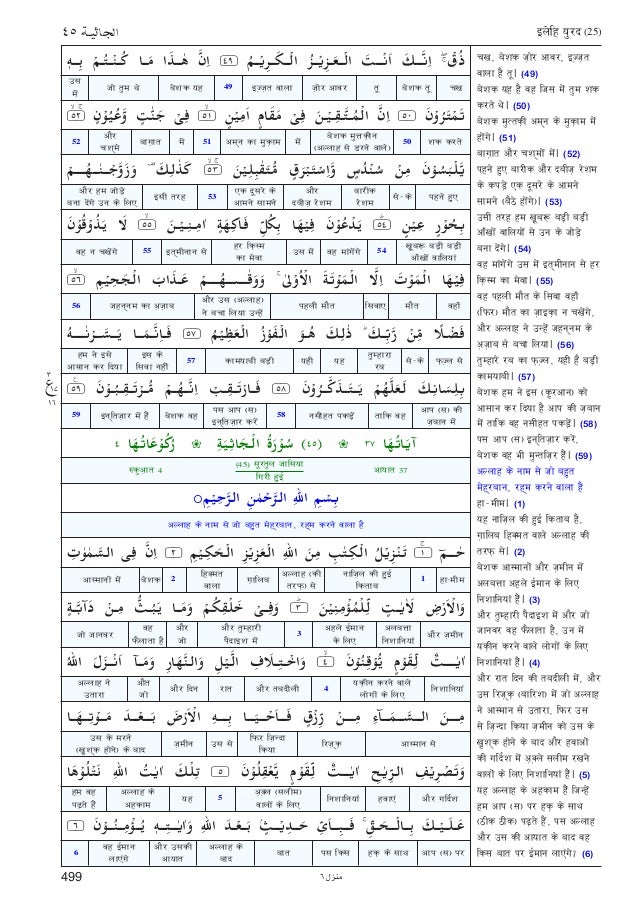 इलैहि युरद (25)
الجاثية ٤٥
ذُقْ ۚۙ اِنَّكَ اَنْتَ الْعَزِيْزُ الْكَرِيْمُ ٤٩ اِنَّ هٰذَا مَا كُنْتُمْ بِهٖ
चख | बेशक तू | तू | ज़ोर आवर | इज़्ज़त वाला | 49 | बेशक यह | जो तुम थे | उस में
تَمْتَرُوْنَ ٥٠ اِنَّ الْمُتَّقِيْنَ فِيْ مَقَامٍ اَمِيْنٍ ٥١ فِيْ جَنّٰتٍ وَّعُيُوْنٍ ٥٢
शक करते | 50 | बेशक मुत्तक़ीन (अल्लाह से डरने वाले) | में | अम्न का मुक़ाम | 51 | में | बाग़ात | और चश्मे | 52
يَّلْبَسُوْنَ مِنْ سُنْدُسٍ وَّاِسْتَبْرَقٍ مُّتَقٰبِلِيْنَ ٥٣ كَذٰلِكَ ۗ وَزَوَّجْنٰهُمْ
पहने हुए | से-के | बारीक रेशम | और दबीज़ रेशम | एक दूसरे के आमने सामने | 53 | इसी तरह | और हम जोड़े बना देंगे उन के लिए
بِحُوْرٍ عِيْنٍ ٥٤ يَدْعُوْنَ فِيْهَا بِكُلِّ فَاكِهَةٍ اٰمِنِيْنَ ٥٥ لَا يَذُوْقُوْنَ
खूबरू बड़ी बड़ी आँखों वालियां | 54 | वह मांगेंगे | उस में | हर क़िस्म का मेवा | इत्मीनान से | 55 | वह न चखेंगे
فِيْهَا الْمَوْتَ اِلَّا الْمَوْتَةَ الْاُوْلٰى ۚ وَوَقٰىهُمْ عَذَابَ الْجَحِيْمِ ٥٦
वहाँ | मौत | सिवाए | पहली मौत | और उस (अल्लाह) ने बचा लिया उन्हें | जहन्नम का अज़ाब | 56
فَضْلًا مِّنْ رَّبِّكَ ۗ ذٰلِكَ هُوَ الْفَوْزُ الْعَظِيْمُ ٥٧ فَاِنَّمَا يَسَّرْنٰهُ
फ़ज़्ल से | से-के | तुम्हारा रब | यह | यही | कामयाबी बड़ी | 57 | इस के सिवा नहीं | हम ने इसे आसान कर दिया
بِلِسَانِكَ لَعَلَّهُمْ يَتَذَكَّرُوْنَ ٥٨ فَارْتَقِبْ اِنَّهُمْ مُّرْتَقِبُوْنَ ٥٩
आप (स) की ज़बान में | ताकि वह | नसीहत पकड़ें | 58 | पस आप (स) इन्तिज़ार करें | बेशक वह | इन्तिज़ार में हैं | 59
٣ ع ١٧ ١٦
اٰيَاتُهَا ٣٧ ❀ (٤٥) سُوْرَةُ الْجَاثِيَةِ ❀ رُكُوْعَاتُهَا ٤
आयात 37 | (45) सूरतुल जासिया गिरी हुई | रुकुआत 4
بِسْمِ اللهِ الرَّحْمٰنِ الرَّحِيْمِ
अल्लाह के नाम से जो बहुत मेह्रबान, रह्म करने वाला है
حٰمٓ ١ تَنْزِيْلُ الْكِتٰبِ مِنَ اللهِ الْعَزِيْزِ الْحَكِيْمِ ٢ اِنَّ فِي السَّمٰوٰتِ
हा-मीम | 1 | नाज़िल की हुई किताब | अल्लाह (की तरफ़) से | ग़ालिब | हिक्मत वाला | 2 | बेशक | आस्मानों में
وَالْاَرْضِ لَاٰيٰتٍ لِّلْمُؤْمِنِيْنَ ٣ وَفِيْ خَلْقِكُمْ وَمَا يَبُثُّ مِنْ دَآبَّةٍ
और ज़मीन | अलबत्ता निशानियां | अहले ईमान के लिए | 3 | और तुम्हारी पैदाइश में | और जो | वह फैलाता है | जो जानवर
اٰيٰتٌ لِّقَوْمٍ يُّوْقِنُوْنَ ٤ وَاخْتِلَافِ الَّيْلِ وَالنَّهَارِ وَمَآ اَنْزَلَ اللهُ
निशानियां | यक़ीन करने वाले लोगों के लिए | 4 | और तबदीली | रात | और दिन | और जो | अल्लाह ने उतारा
مِنَ السَّمَآءِ مِنْ رِّزْقٍ فَاَحْيَا بِهِ الْاَرْضَ بَعْدَ مَوْتِهَا
आस्मान से | रिज़्क़ | फिर ज़िन्दा किया | उस से | ज़मीन | उस के मरने (खुश्क होने) के बाद
وَتَصْرِيْفِ الرِّيٰحِ اٰيٰتٌ لِّقَوْمٍ يَّعْقِلُوْنَ ٥ تِلْكَ اٰيٰتُ اللهِ نَتْلُوْهَا
और गर्दिश | हवाएं | निशानियां | अ़क़्ल (सलीम) वालों के लिए | 5 | यह | अल्लाह के अहकाम | हम वह पढ़ते हैं
عَلَيْكَ بِالْحَقِّ ۚ فَبِاَيِّ حَدِيْثٍۢ بَعْدَ اللهِ وَاٰيٰتِهٖ يُؤْمِنُوْنَ ٦
आप (स) पर | हक़ के साथ | पस किस | बात | अल्लाह के बाद | और उसकी आयात | वह ईमान लाएंगे | 6
चख, बेशक ज़ोर आवर, इज़्ज़त
वाला है तू। (49)
बेशक यह है वह जिस में तुम शक
करते थे। (50)
बेशक मुत्तक़ी अम्न के मुक़ाम में
होंगे। (51)
बाग़ात और चश्मों में। (52)
पहने हुए बारीक और दबीज़ रेशम
के कपड़े एक दूसरे के आमने
सामने (बैठे होंगे)। (53)
उसी तरह हम खूबरू बड़ी बड़ी
आँखों वालियों से उन के जोड़े
बना देंगे। (54)
वह मांगेंगे उस में इत्मीनान से हर
क़िस्म का मेवा। (55)
वह पहली मौत के सिवा वहाँ
(फिर) मौत का ज़ाइक़ा न चखेंगे,
और अल्लाह ने उन्हें जहन्नम के
अज़ाब से बचा लिया। (56)
तुम्हारे रब का फ़ज़्ल, यही है बड़ी
कामयाबी। (57)
बेशक हम ने इस (कुरआन) को
आसान कर दिया है आप की ज़बान
में ताकि वह नसीहत पकड़ें। (58)
पस आप (स) इन्तिज़ार करें,
बेशक वह भी मुन्तज़िर हैं। (59)
अल्लाह के नाम से जो बहुत
मेह्रबान, रह्म करने वाला है
हा-मीम। (1)
यह नाज़िल की हुई किताब है,
ग़ालिब हिक्मत वाले अल्लाह की
तरफ़ से। (2)
बेशक आस्मानों और ज़मीन में
अलबत्ता अहले ईमान के लिए
निशानियां हैं। (3)
और तुम्हारी पैदाइश में और जो
जानवर वह फैलाता है, उन में
यक़ीन करने वाले लोगों के लिए
निशानियां हैं। (4)
और रात दिन की तबदीली में, और
उस रिज़्क़ (बारिश) में जो अल्लाह
ने आस्मान से उतारा, फिर उस
से ज़िन्दा किया ज़मीन को उस के
खुश्क होने के बाद और हवाओं
की गर्दिश में अ़क़्ले सलीम रखने
वालों के लिए निशानियां हैं। (5)
यह अल्लाह के अहकाम हैं जिन्हें
हम आप (स) पर हक़ के साथ
(ठीक ठीक) पढ़ते हैं, पस अल्लाह
और उस की आयात के बाद वह
किस बात पर ईमान लाएंगे? (6)
499
منزل ٦